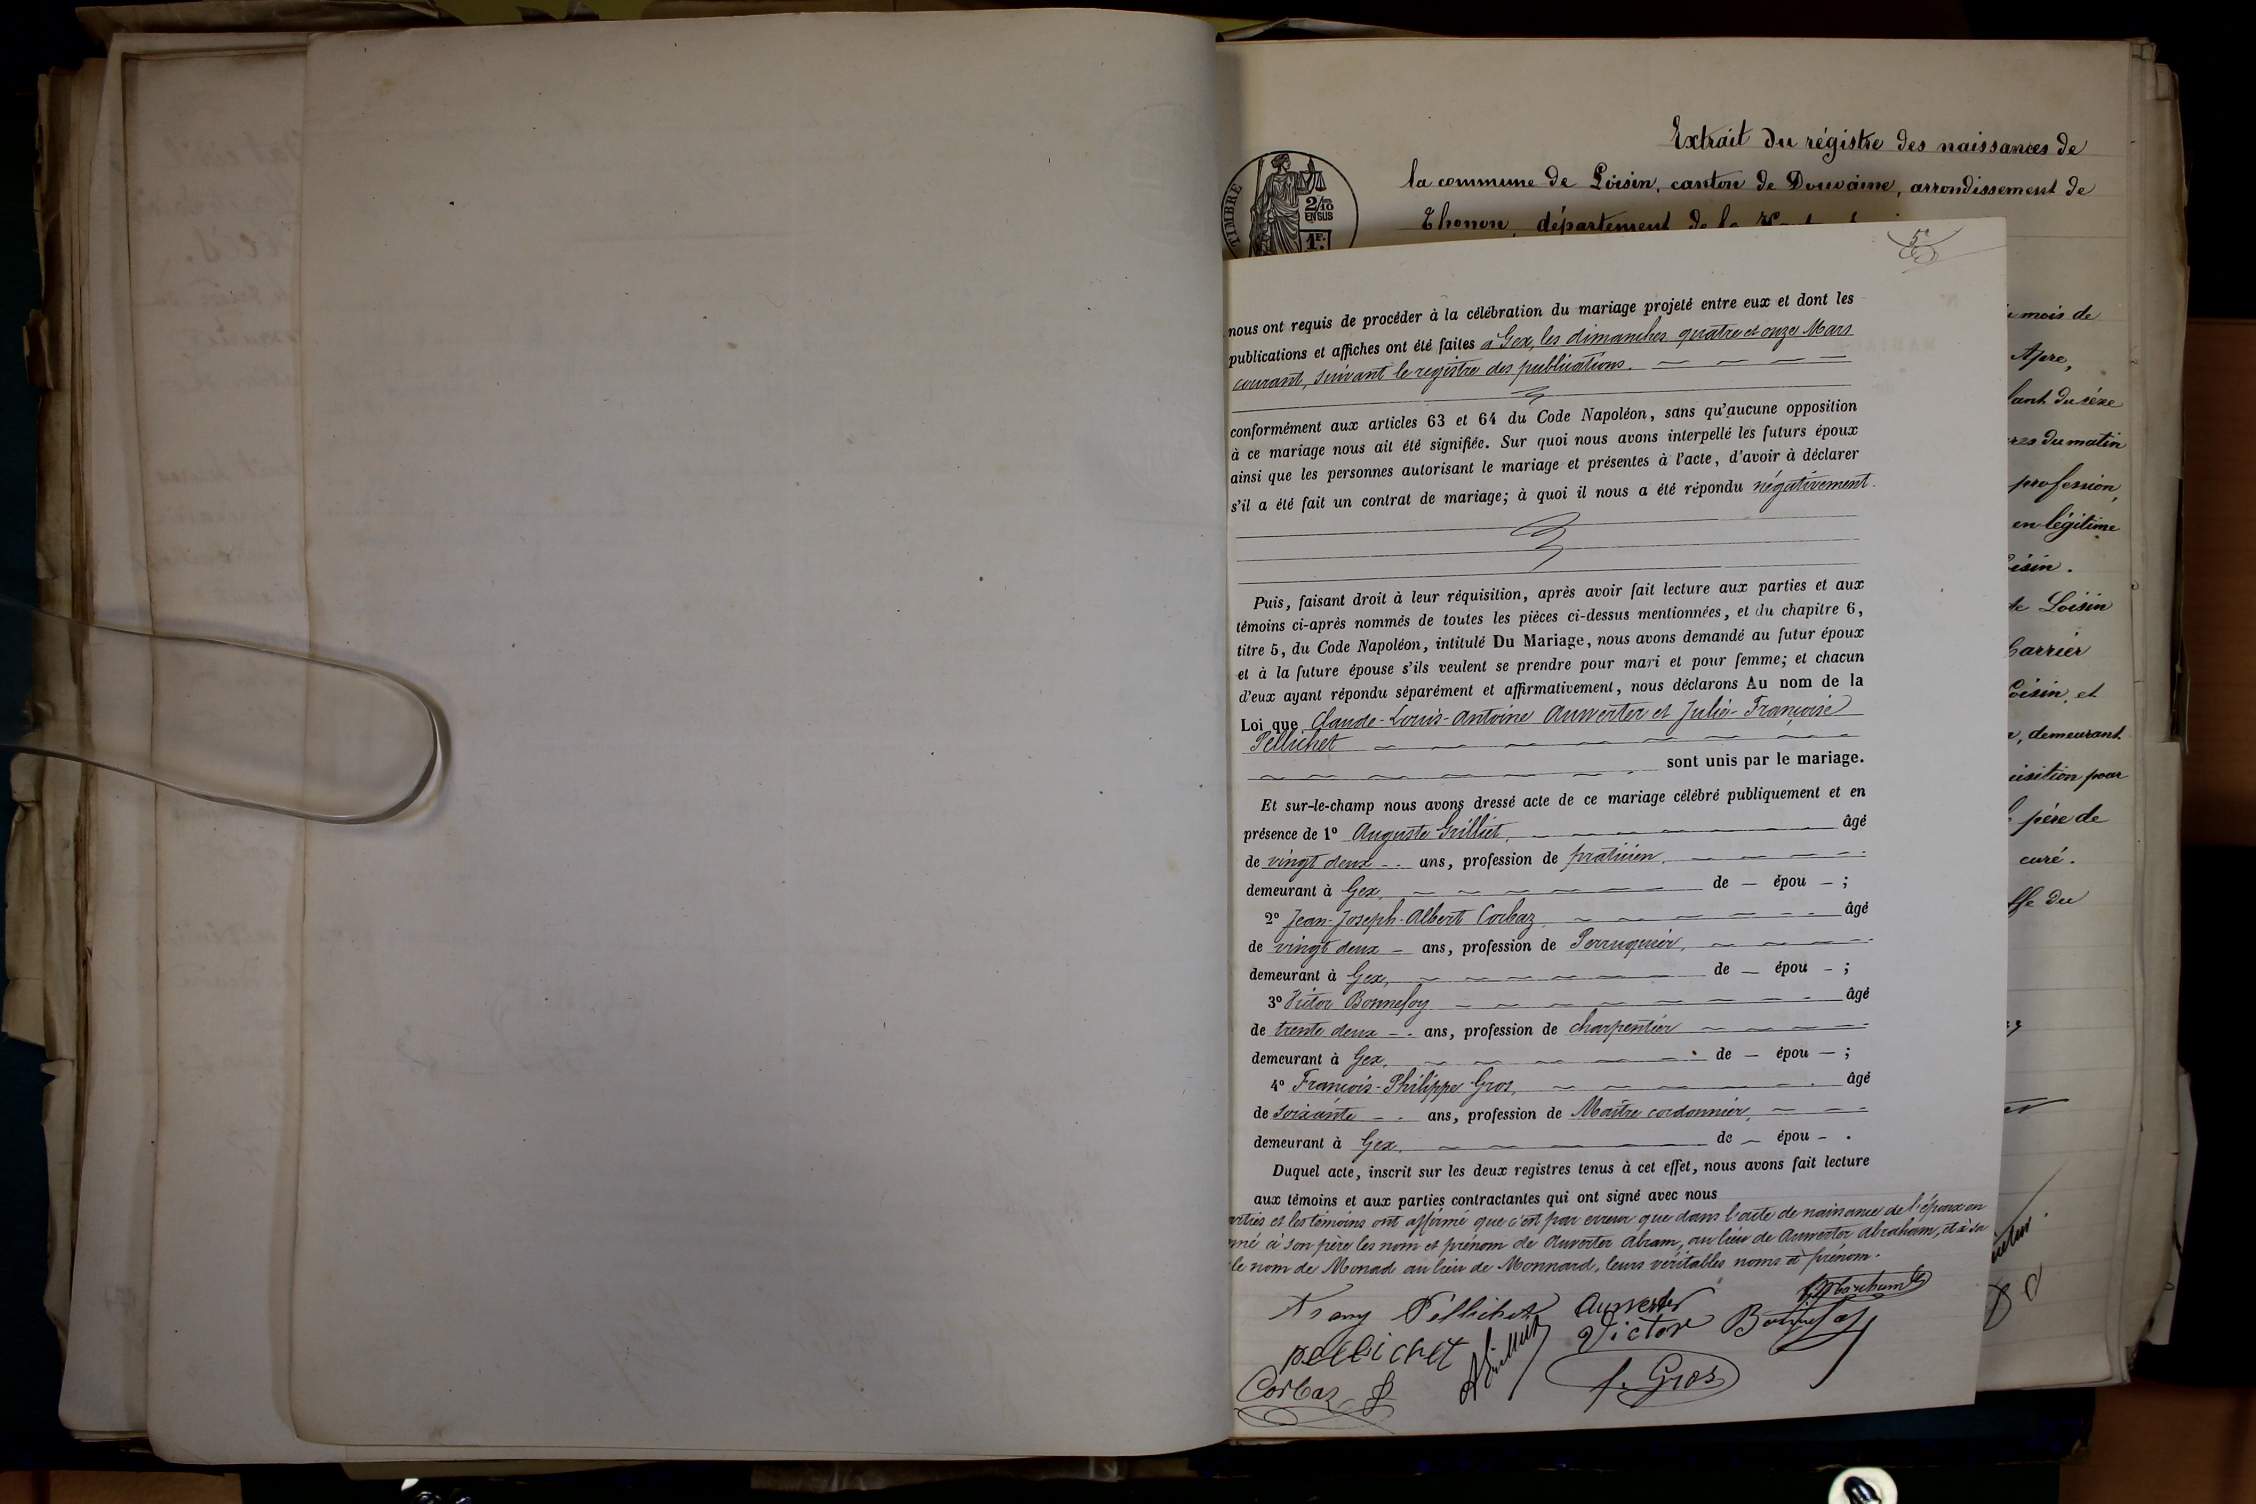 Extrait du régistre des naissances de
la commune de Loisin, canton de Douvaine, arrondissement de
Thonon, département de la
TIMBRE
2/10
EN SUS
1F.
5e
nous ont requis de procéder à la célébration du mariage projeté entre eux et dont les
publications et affiches ont été faites à Gex, les dimanches quatre et onze Mars
courant, suivant le registre des publications.
conformément aux articles 63 et 64 du Code Napoléon, sans qu'aucune opposition
à ce mariage nous ait été signifiée. Sur quoi nous avons interpellé les futurs époux
ainsi que les personnes autorisant le mariage et présentes à l'acte, d'avoir à déclarer
s'il a été fait un contrat de mariage; à quoi il nous a été répondu négativement.
Puis, faisant droit à leur réquisition, après avoir fait lecture aux parties et aux
témoins ci-après nommés de toutes les pièces ci-dessus mentionnées, et du chapitre 6,
titre 5, du Code Napoléon, intitulé Du Mariage, nous avons demandé au futur époux
et à la future épouse s'ils veulent se prendre pour mari et pour femme; et chacun
d'eux ayant répondu séparément et affirmativement, nous déclarons Au nom de la
Loi que Claude-Louis-Antoine Auwerter et Julie-Françoise
Pellichet
sont unis par le mariage.
Et sur-le-champ nous avons dressé acte de ce mariage célébré publiquement et en
présence de 1º Auguste Grilliet, âgé
de vingt deux ans, profession de praticien,
demeurant à Gex, de — épou — ;
2º Jean-Joseph-Albert Corbaz âgé
de vingt deux — ans, profession de Perruquier,
demeurant à Gex, de — épou — ;
3º Victor Bonnefoy âgé
de trente deux ans, profession de charpentier
demeurant à Gex, de — épou — ;
4º François-Philippe Gros, âgé
de soixante ans, profession de Maître cordonnier,
demeurant à Gex, de — épou — .
Duquel acte, inscrit sur les deux registres tenus à cet effet, nous avons fait lecture
aux témoins et aux parties contractantes qui ont signé avec nous
et les témoins ont affirmé que c'est par erreur que dans l'acte de naissance de l'époux on
à son père les nom et prénom de Auwerter Abram, au lieu de Auwerter Abraham, et à sa
le nom de Monad au lieu de Monnard, leurs véritables noms et prénom.
Pellichet Auwerter
Victor Bonnefoy
pellichet
Corbaz
f. Gros
mois de
du séxe
du matin
profession,
en légitime
de Loisin
Carrier
Loisin, et
demeurant
pour
père de
curé.
du